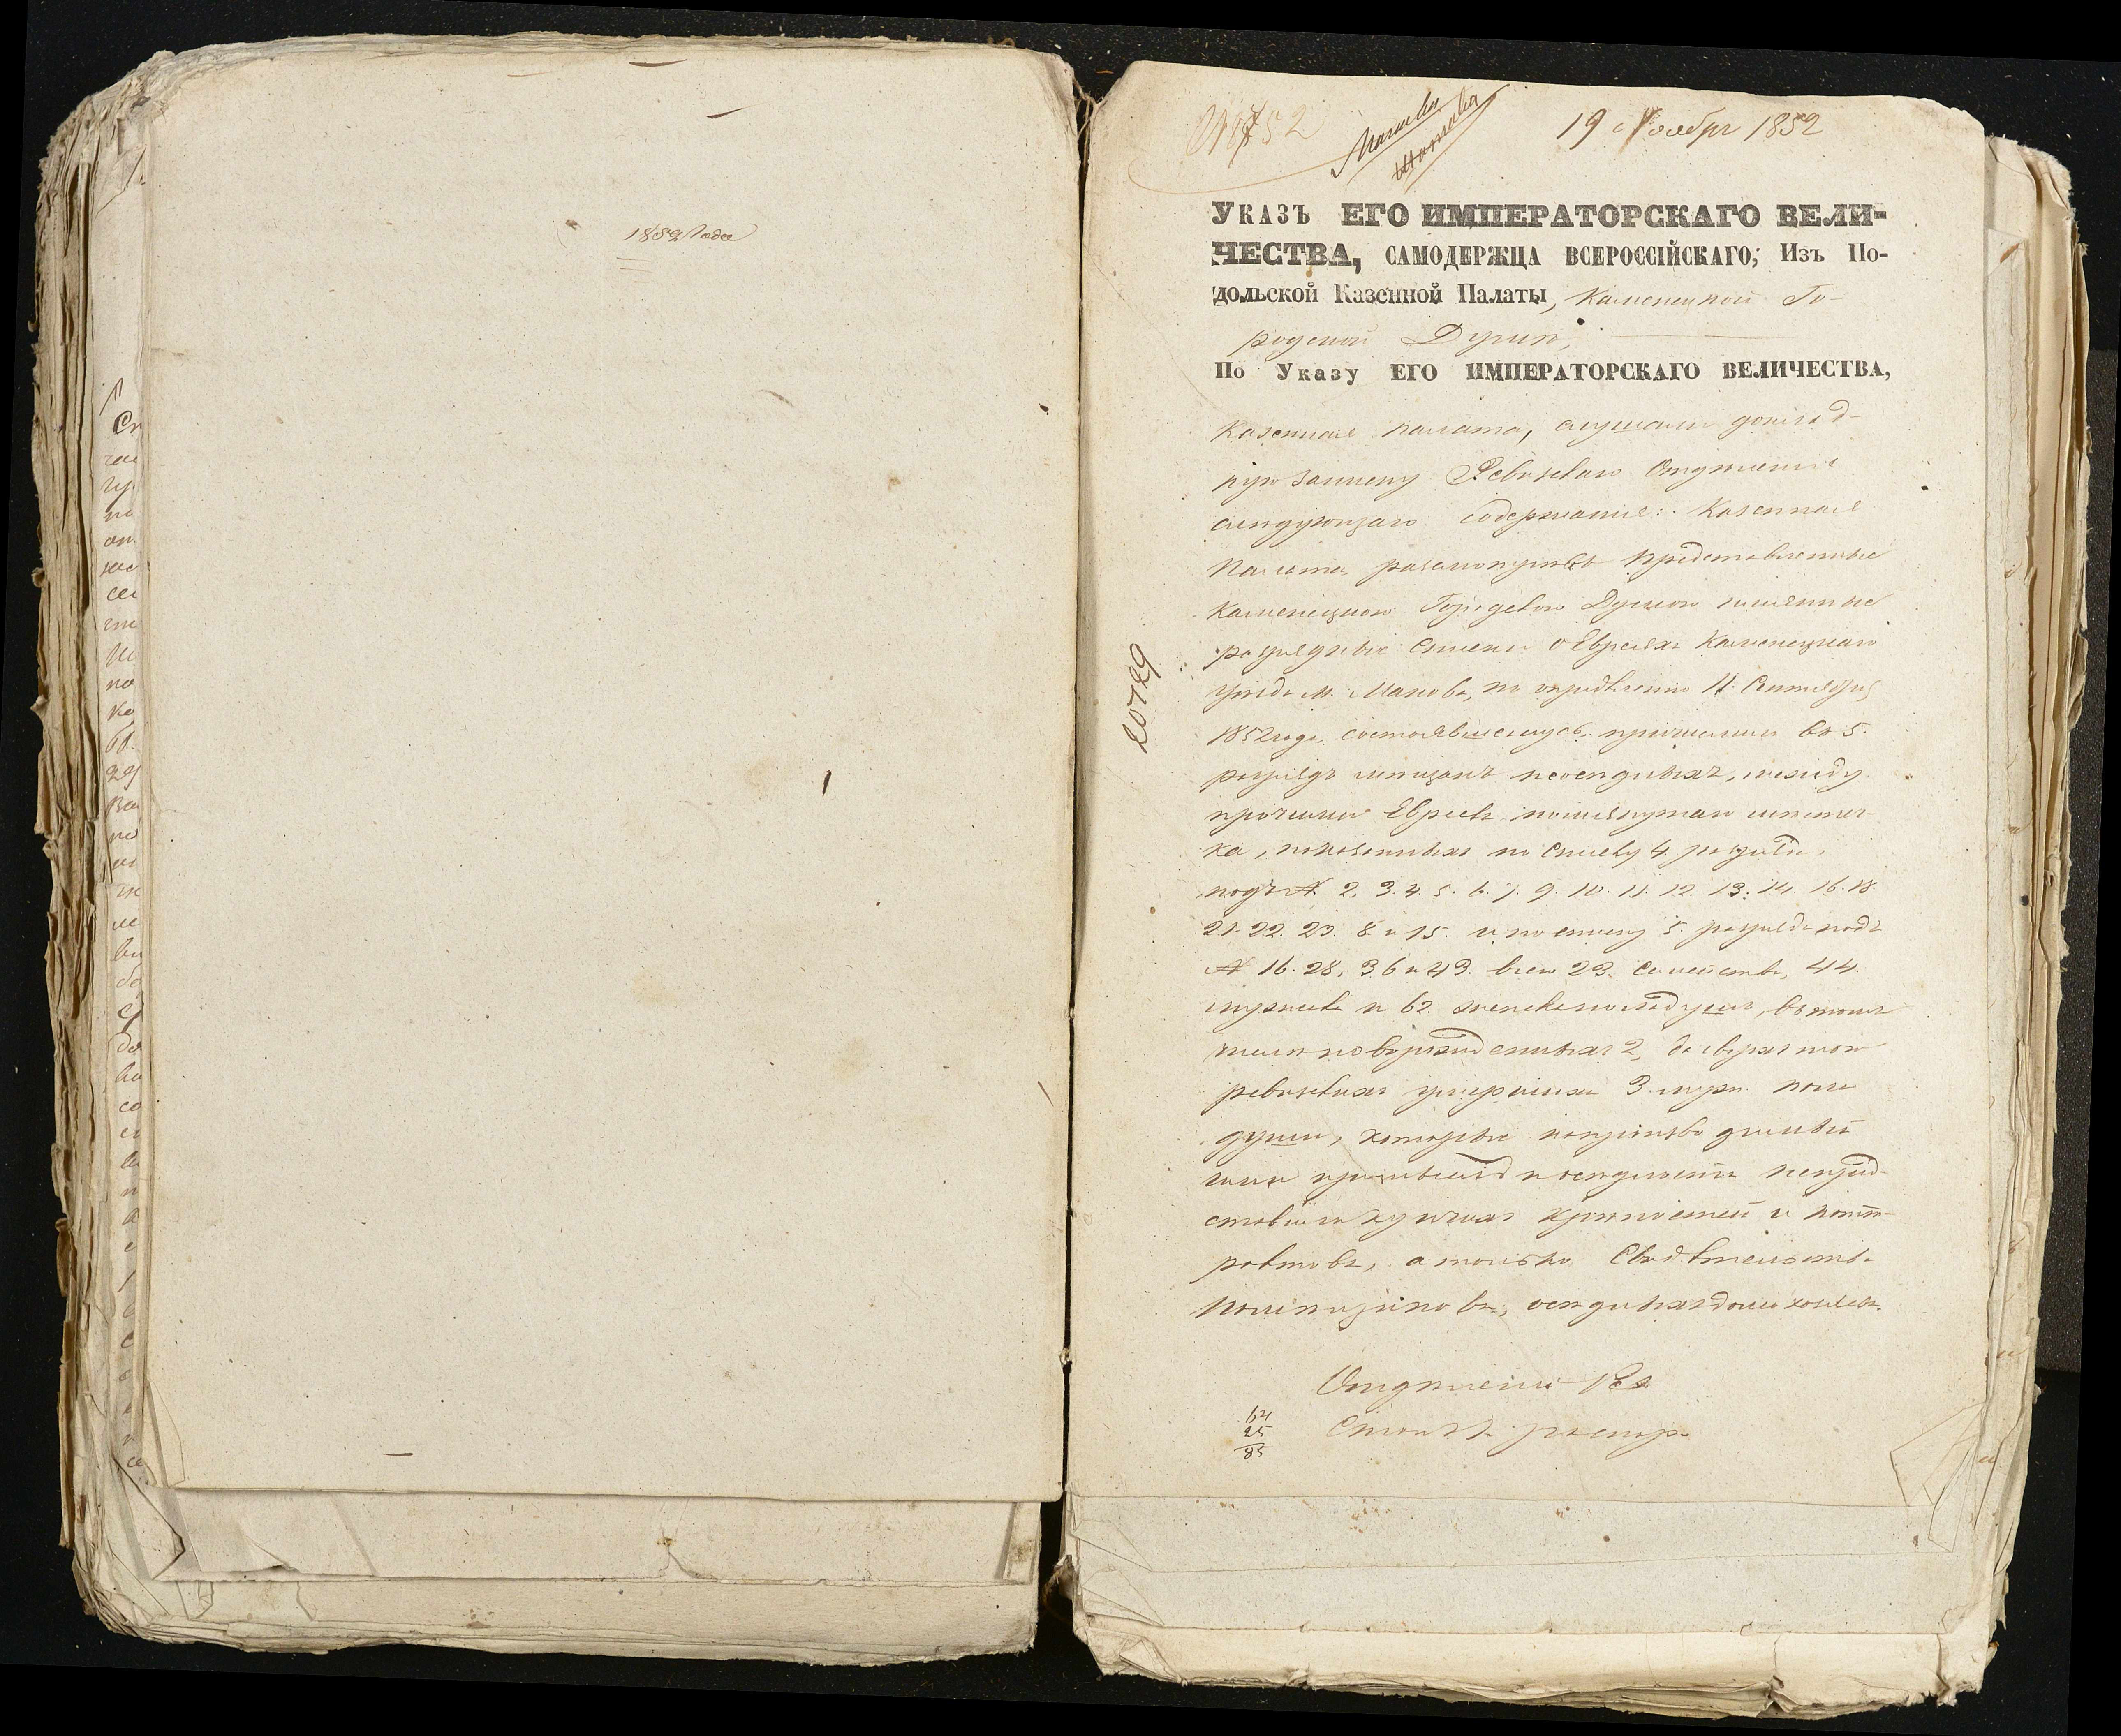 1852 Года
19 Ноября 1852
Указъ ЕГО ИМПЕРАТОРСКАГО ВЕЛИ-
ЧЕСТВА, САМОДЕРЖЦА ВСЕРОССІЙСКАГО, Изъ По-
дольской Казенной Палаты, Каменецкой Го-
родской Думѣ,
По Указу ЕГО ИМПЕРАТОРСКАГО ВЕЛИЧЕСТВА,
Казенная палата, слушали доклад-
ную записку Ревизскаго Отдѣленія
слѣдующаго содержанія: Казенная
Палата разсмотрѣвъ представленные
Каменецкою Городскою Думою именные
разрядные списки о Евреяхъ Каменецкаго
уѣзда м. Макова, по опредѣленію 11 Сентября
1852 года состоявшемуся причислила въ 5.
разрядъ мѣщанъ неосѣдлыхъ, между
прочими Евреевъ помянутаго мѣстеч-
ка, показанныхъ по списку 4 разряда,
подъ № 2. 3. 4. 5. 6. 7. 9. 10. 11. 12. 13. 14. 16. 18.
21. 22. 23. 8 и 15. и по списку 5. разряда подъ
№ 16. 28, 36 и 43. всего 23. семейства, 44.
мужеска и 62. женска пола душъ, въ томъ
числѣ новорожденныхъ 2, да сверхъ того
ревизскихъ умершихъ 3. муж. пола
души, которые
осѣдлости непред-
ставили купчихъ крѣпостей и конт-
рактовъ, а только Свидѣтельства
осѣдлыхъ домохозяевъ.
20729
Отдѣленіе Рев.
Столъ
64
25
85